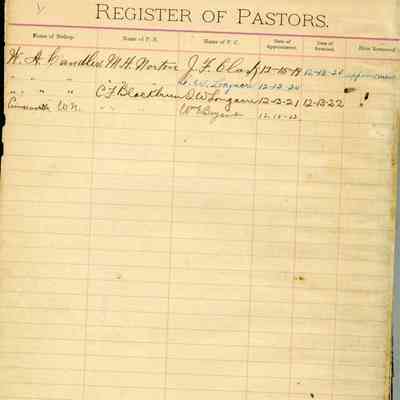 REGISTER OF PASTORS.
Name of Bishop. Name of P. E. Name of P. C. Date of Appointment. Date of Removal. How Removed
W. A. Candler M. H. Norton J. F. Clark 12-15-19 12-12-20 appointment
" " " " " 12-12-20
" " " C F Blackburn D. W. 12-12-21 12-13-22 "
W. N. " " 12-15-